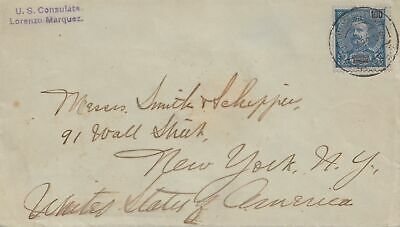 U. S. Consulate.
Lorenzo Marquez.
100
Messrs. Smith & Schipper,
91 Wall Street,
New York, N. Y.,
United States of America